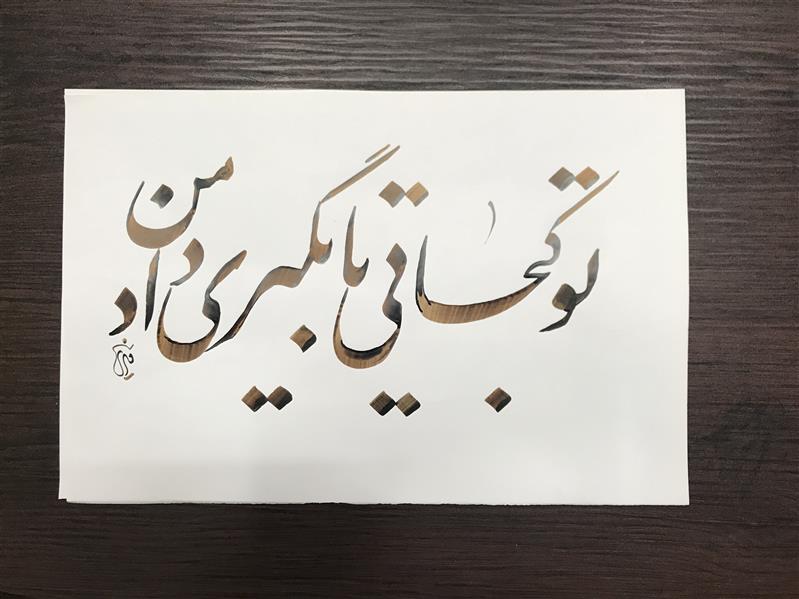 تو کجایی تا بگیری داد من